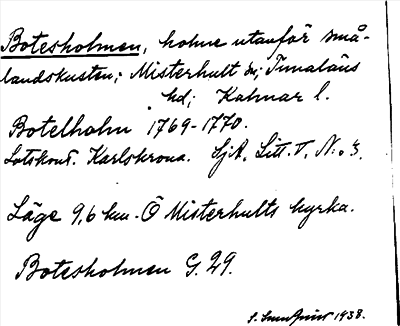 Botesholmen, holme utanför små-
landskusten; Misterhult sn; Tunaläns
hd; Kalmar l.
Botelholm 1769-1770.
Lotskont. Karlskrona. SjA. Litt. V, N:o 3.
Läge 9,6 km. Ö Misterhults kyrka.
Botesholmen G. 29.
S. 1938.